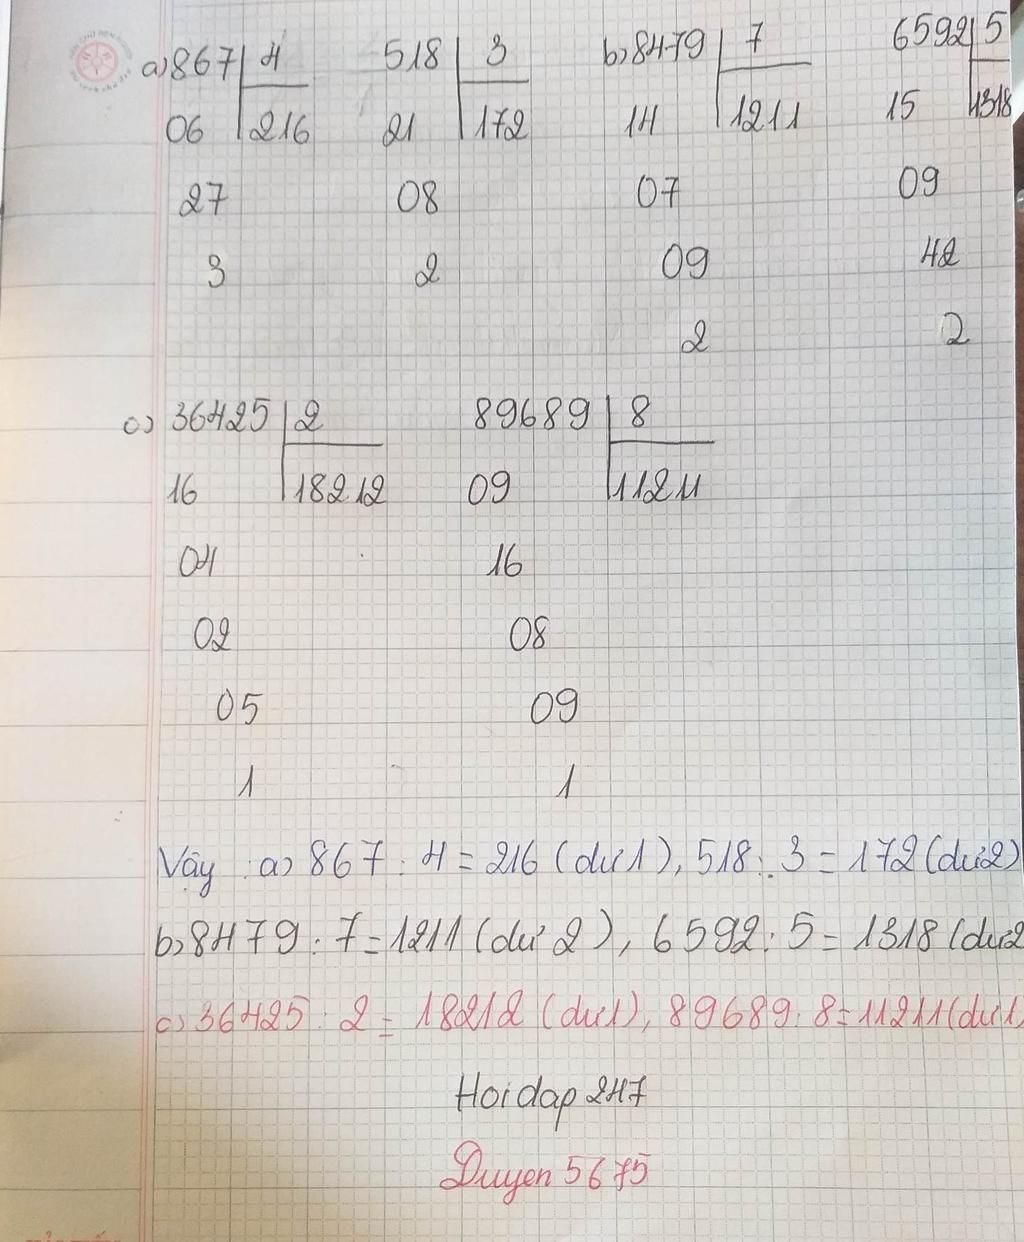 a) 867 4 518 3 b) 8479 7 6592 5
06 216 21 172 14 1211 15 1318
27 08 07 09
3 2 09 42
2 2
c) 36425 2 89689 8
16 18212 09 11211
04 16
02 08
05 09
1 1
Vậy : a) 867 : 4 = 216 (dư 1), 518 : 3 = 172 (dư 2)
b) 8479 : 7 = 1211 (dư 2), 6592 : 5 = 1318 (dư 2
c) 36425 : 2 = 18212 (dư 1), 89689 : 8 = 11211 (dư 1)
Hoidap 247
Duyen 5675